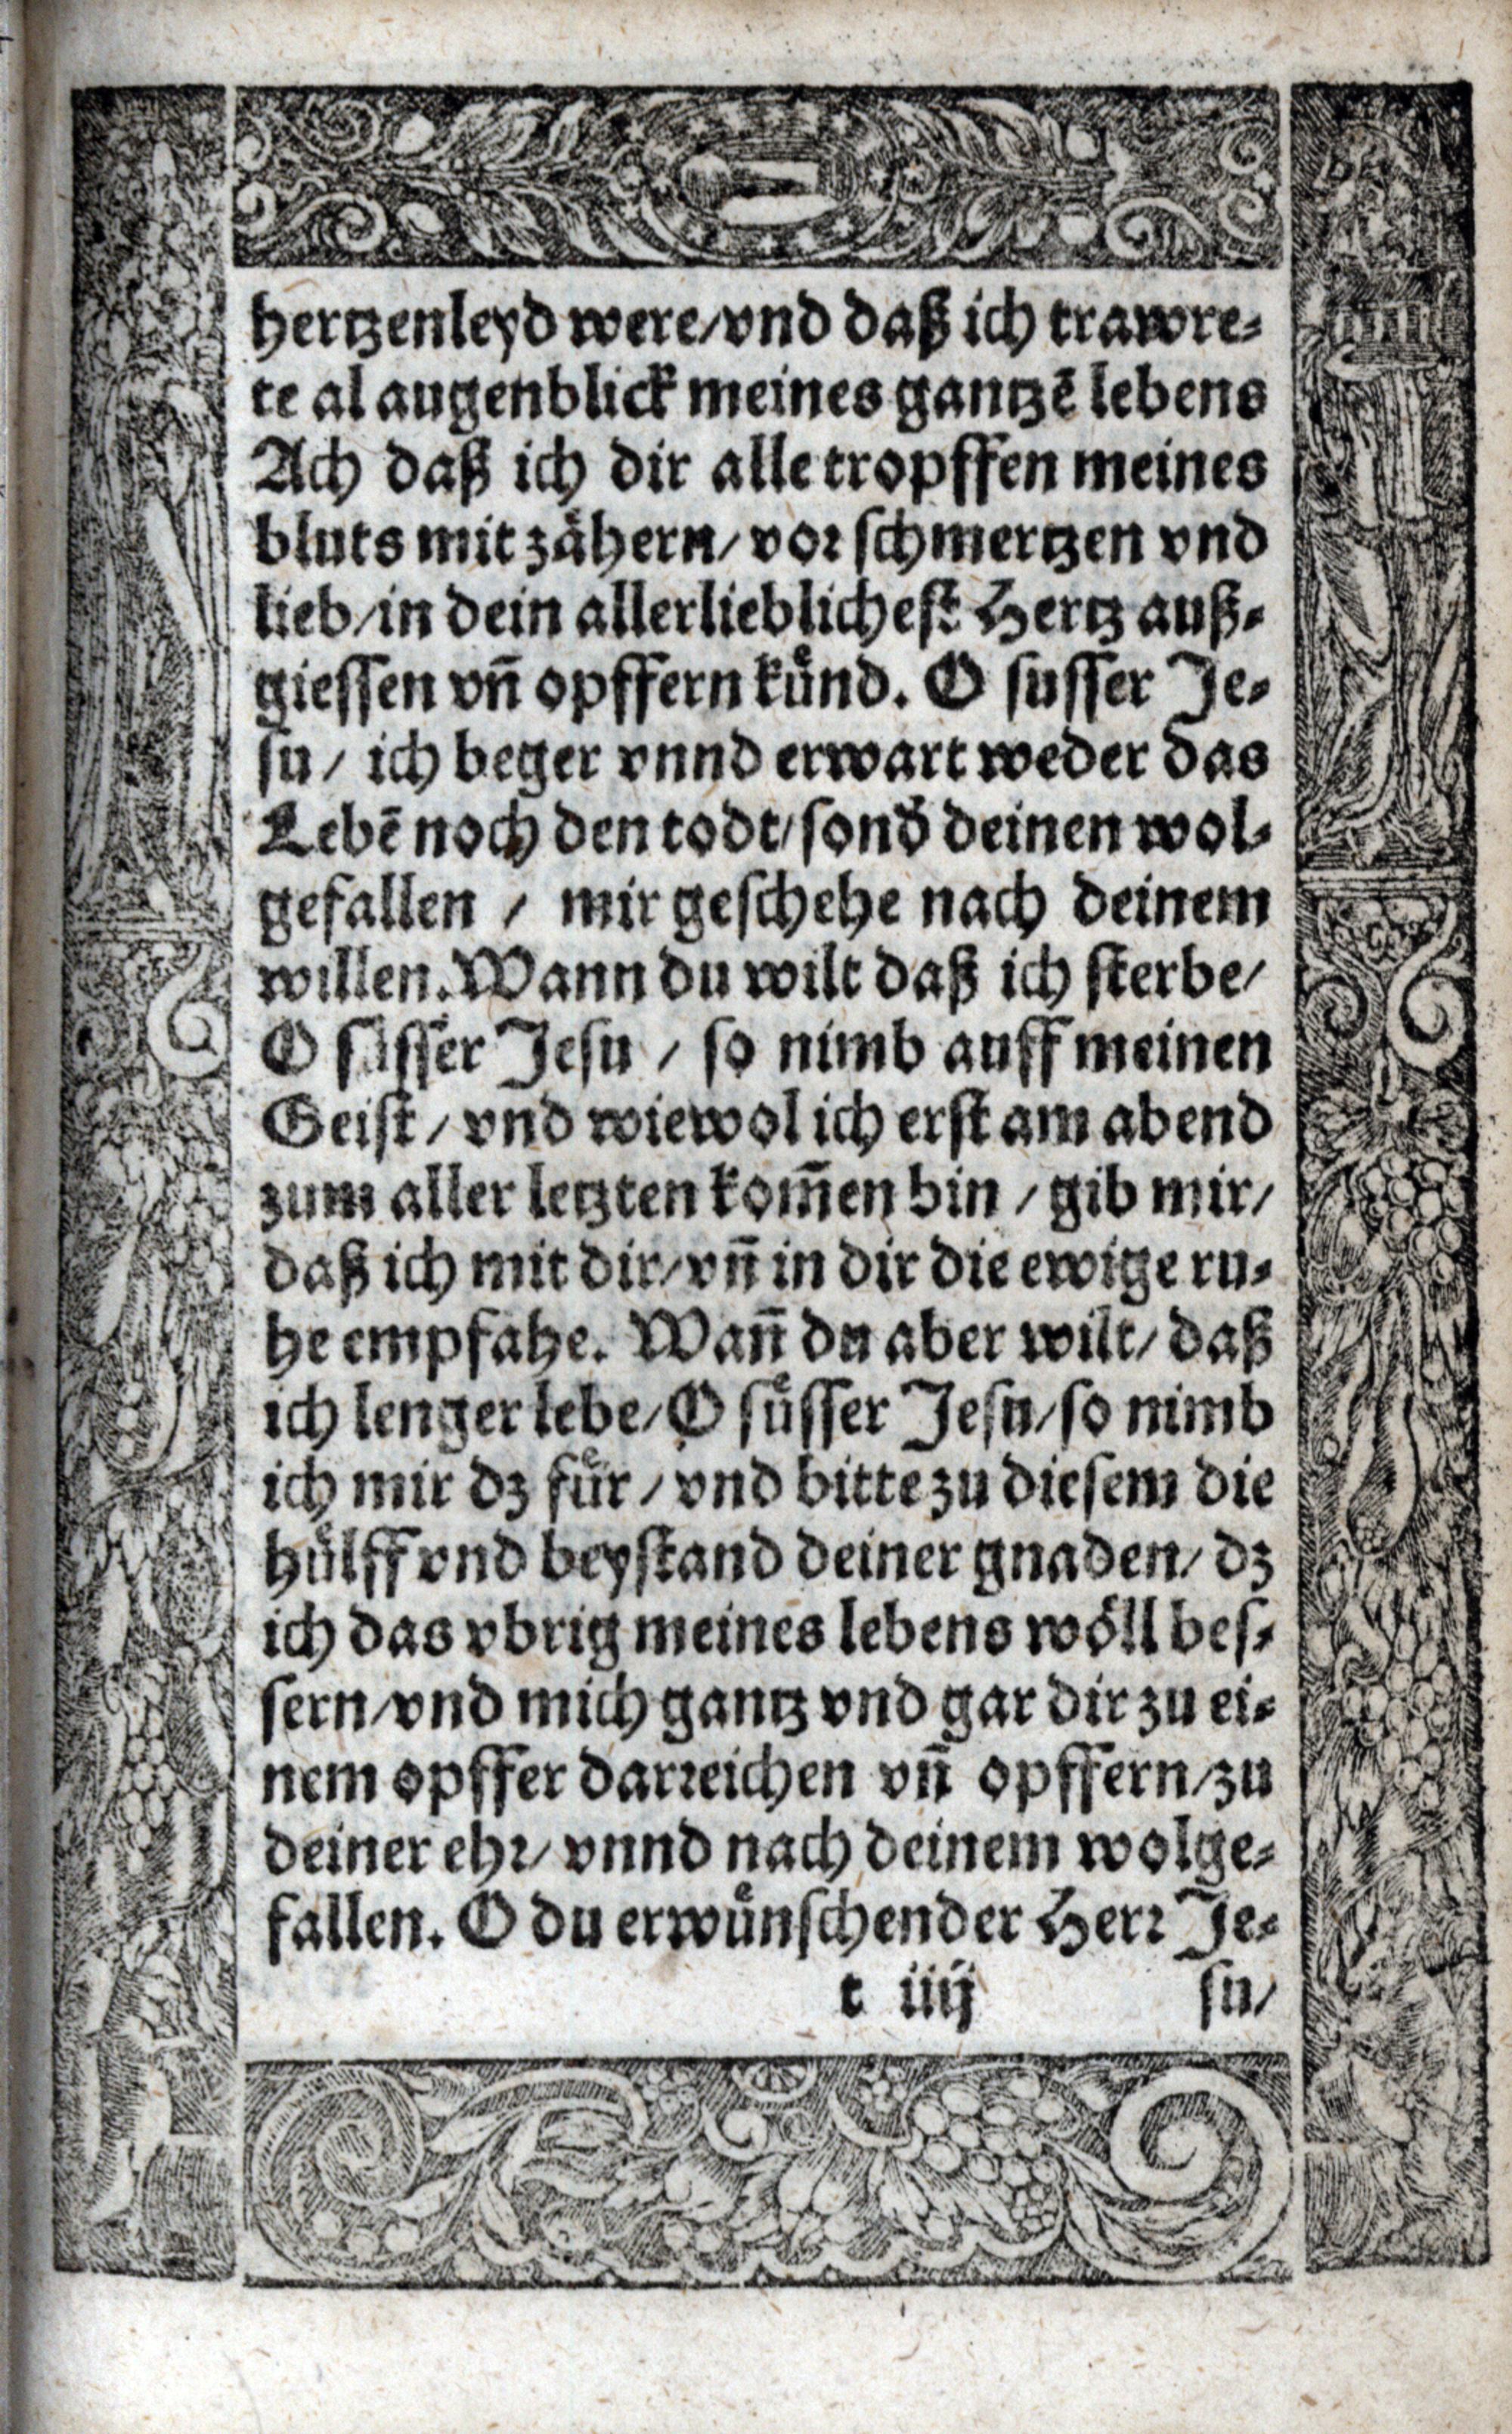 hertzenleyd were/vnd daß ich trawre-
te al augenblick meines gantzē lebens
Ach daß ich dir alle tropffen meines
bluts mit zähern/vor schmertzen vnd
lieb/in dein allerlieblichest Hertz auß-
giessen vn̄ opffern kuͤnd. O susser Je-
su/ ich beger vnnd erwart weder das
Lebē noch den todt/sond̾ deinen wol-
gefallen / mir geschehe nach deinem
willen. Wann du wilt daß ich sterbe/
O süsser Jesu / so nimb auff meinen
Geist/vnd wiewol ich erst am abend
zum aller letzten kom̄en bin /gib mir/
daß ich mit dir/vn̄ in dir die ewige ru-
he empfahe. Wan̄ du aber wilt/daß
ich lenger lebe/O suͤsser Jesu/so nimb
ich mir dz fuͤr /vnd bitte zu diesem die
huͤlff vnd beystand deiner gnaden/dz
ich das vbrig meines lebens woͤll bes-
sern/vnd mich gantz vnd gar dir zu ei-
nem opffer darreichen vn̄ opffern/zu
deiner ehr/vnnd nach deinem wolge-
fallen. O du erwuͤnschender Herr Je-
t iiij su/